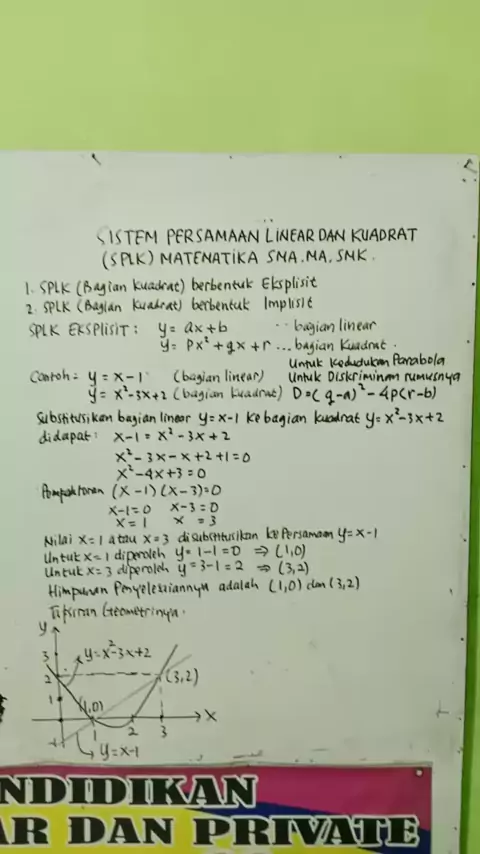 SISTEM PERSAMAAN LINEAR DAN KUADRAT
(SPLK) MATENATIKA SMA. MA. SMK.
1. SPLK (Bagian Kuadrat) berbentuk Eksplisit
2. SPLK (Bagian Kuadrat) berbentuk Implisit
SPLK EKSPLISIT: y = ax + b ... bagian linear
y = px² + qx + r ... bagian Kuadrat.
Untuk Kedudukan Parabola
Contoh: y = x-1 (bagian linear) Untuk Diskriminan rumusnya
y = x²-3x+2 (bagian kuadrat) D=(q-a)²-4p(r-b)
Substitusikan bagian linear y=x-1 ke bagian kuadrat y=x²-3x+2
didapat: x-1 = x²-3x+2
x²-3x-x+2+1=0
x²-4x+3=0
(x-1)(x-3)=0
x-1=0 x-3=0
x=1 x = 3
Nilai x=1 atau x=3 disubstitusikan ke Persamaan y=x-1
Untuk x=1 diperoleh y=1-1=0 ⇒ (1,0)
Untuk x=3 diperoleh y=3-1=2 ⇒ (3,2)
Himpunan Penyelesaiannya adalah (1,0) dan (3,2)
Tafsiran Geometrinya.
y
3
y=x²-3x+2
2
(3,2)
1
(1,0)
x
-1
1 2 3
y=x-1
NDIDIKAN
AR DAN PRIVATE